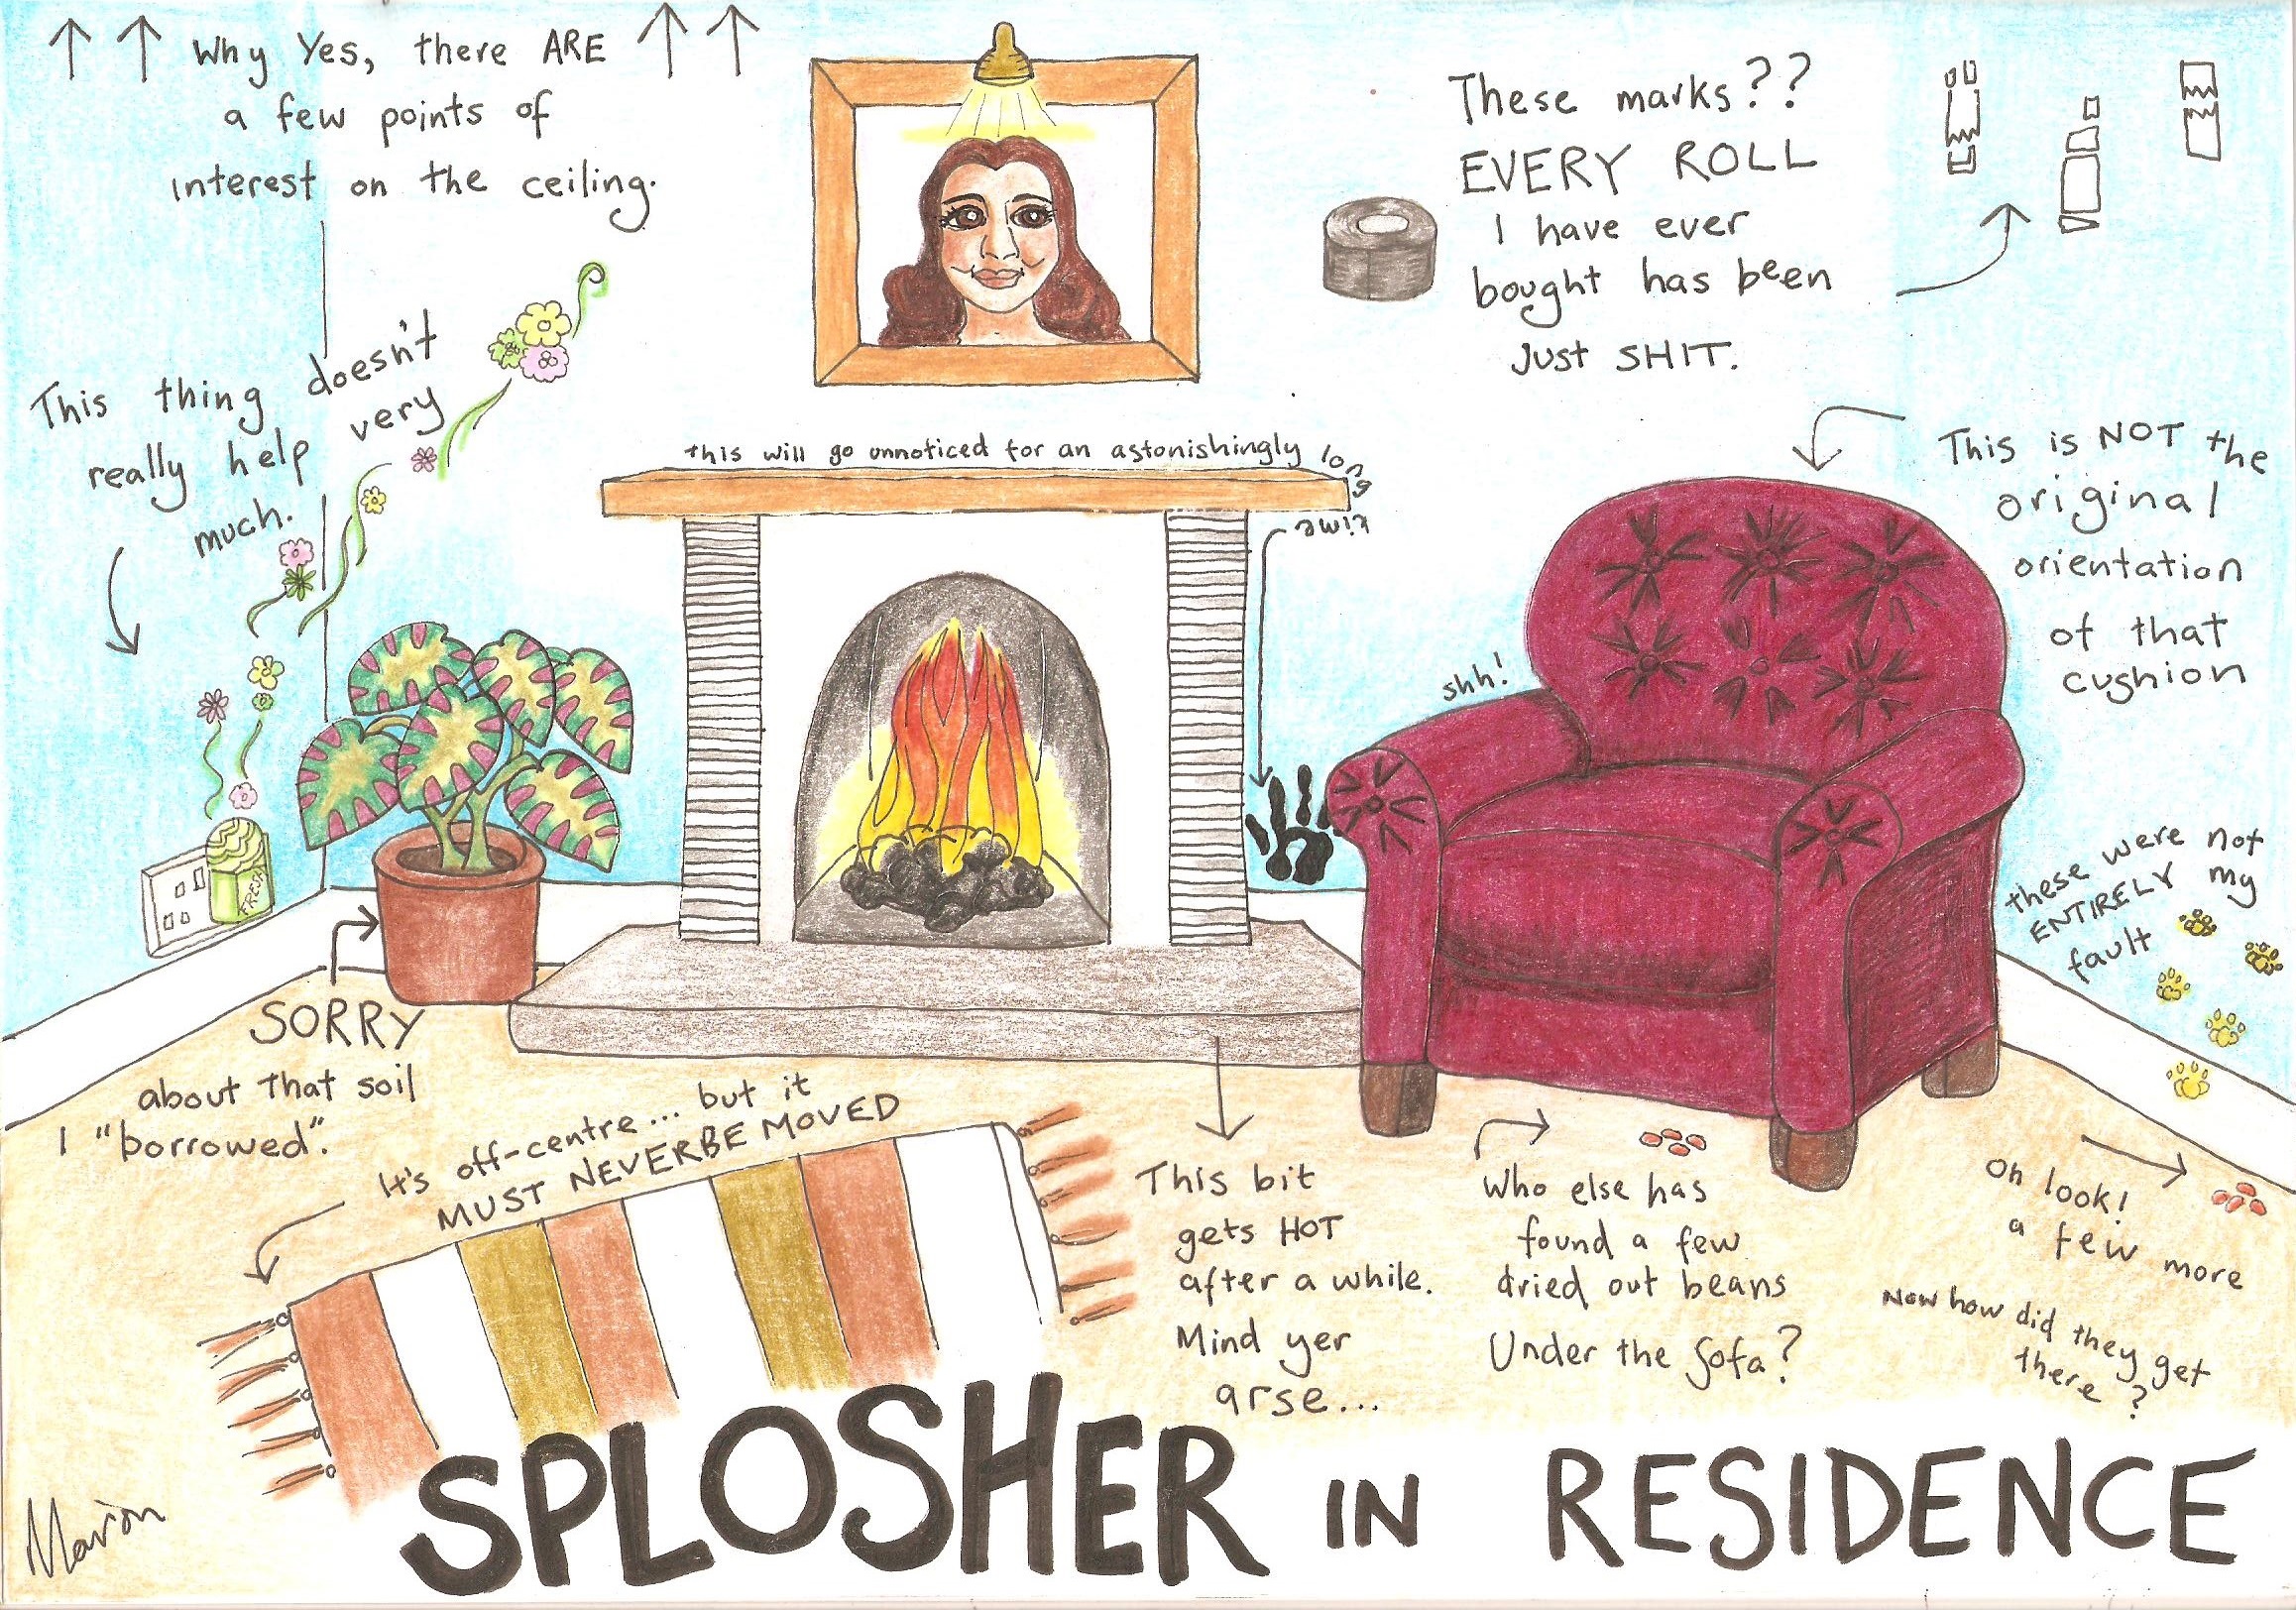 Why Yes, there ARE
a few points of
interest on the ceiling.
These marks??
EVERY ROLL
I have ever
bought has been
Just SHIT.
This thing doesn't
really help very
much.
this will go unnoticed for an astonishingly long
time
This is NOT the
original
orientation
of that
cushion
shh!
FRESH
these were not
ENTIRELY my
fault
SORRY
about that soil
I "borrowed".
It's off-centre... but it
MUST NEVERBE MOVED
This bit
gets HOT
after a while.
Mind yer
arse...
Who else has
found a few
dried out beans
Under the Sofa?
Oh look!
a few more
Now how did they get
there?
Marion
SPLOSHER IN RESIDENCE